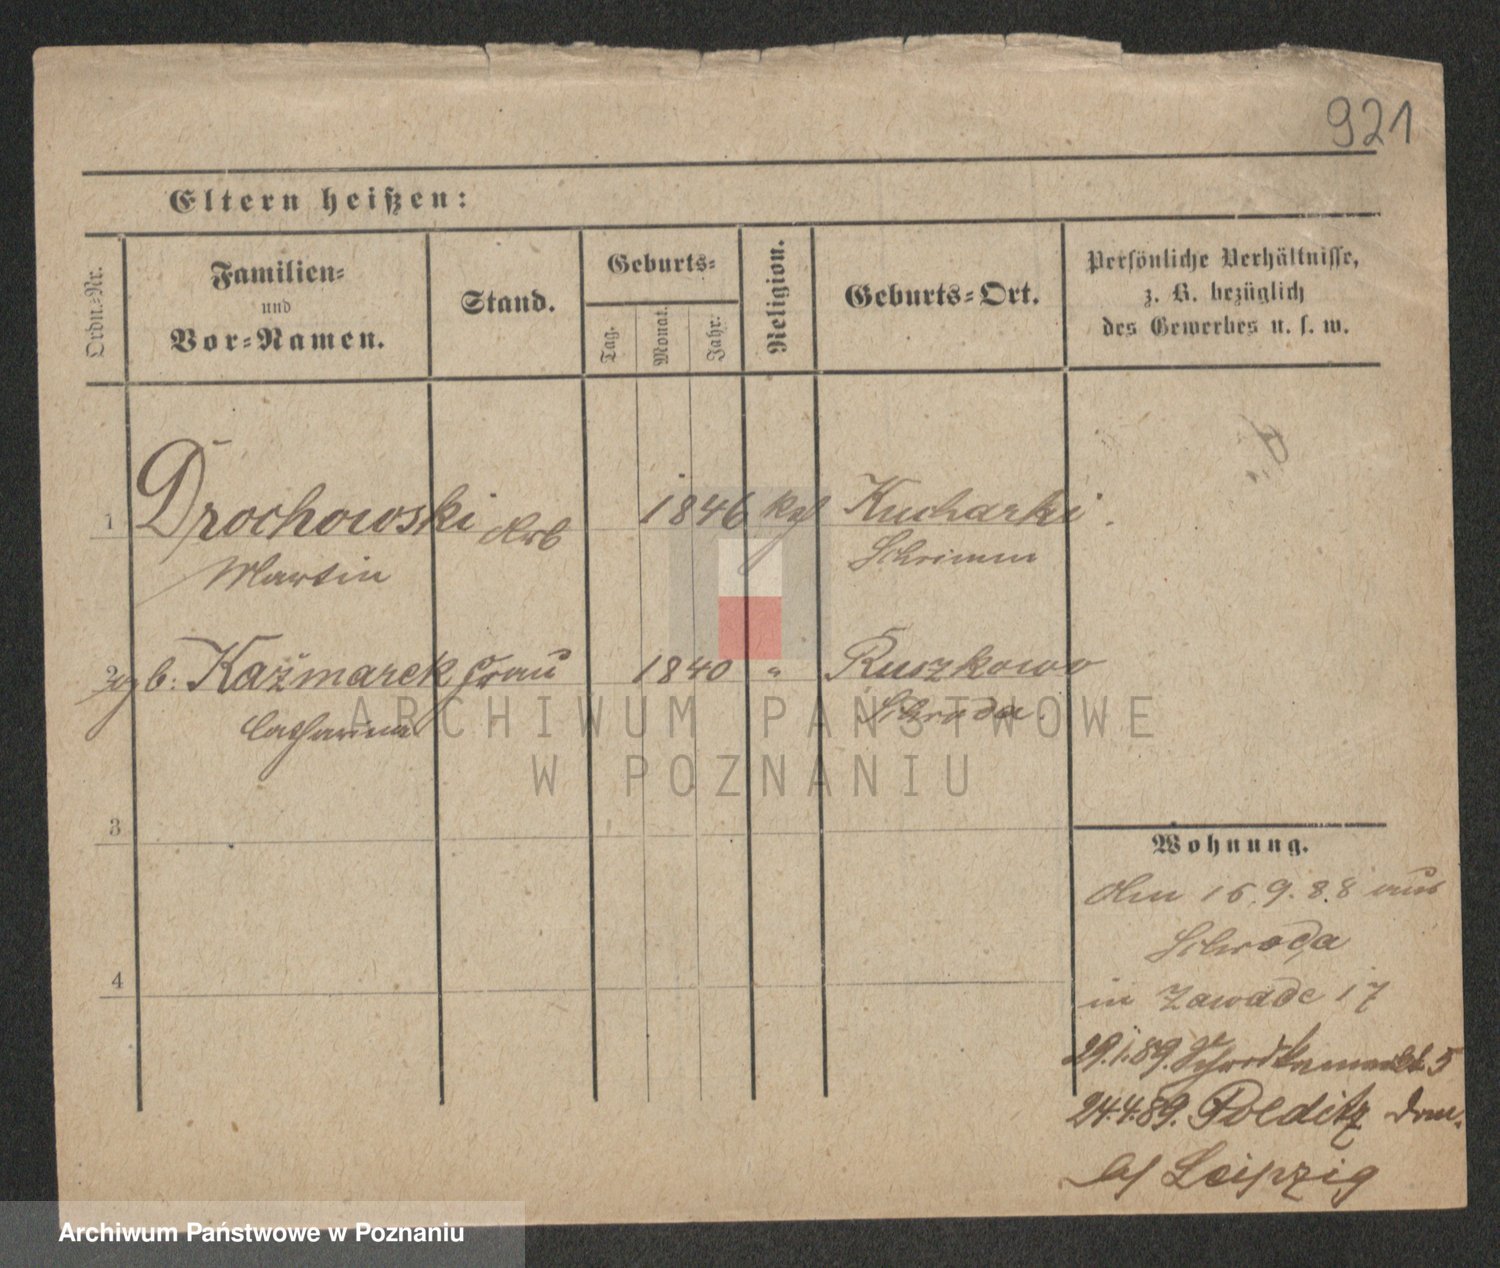 921
Eltern heißen:
Ordn.-Nr.
Familien-
und
Vor-Namen.
Stand.
Geburts-
Tag.
Monat.
Jahr.
Religion.
Geburts-Ort.
Persönliche Verhältnisse,
z. B. bezüglich
des Gewerbes u. s. w.
1 Drochowski Arb 1846 kath Kucharki
Martin Schrimm
2 geb: Kaźmarek Frau 1840 " Ruszkowo
Catharina Schroda
3
4
Wohnung.
Am 16.9.88 aus
Schroda
in Zawade 17
29.1.89. Schrodkamarkt 5
24.4.89. Polditz Dom.
b/ Leipzig
ARCHIWUM PAŃSTWOWE
W POZNANIU
Archiwum Państwowe w Poznaniu